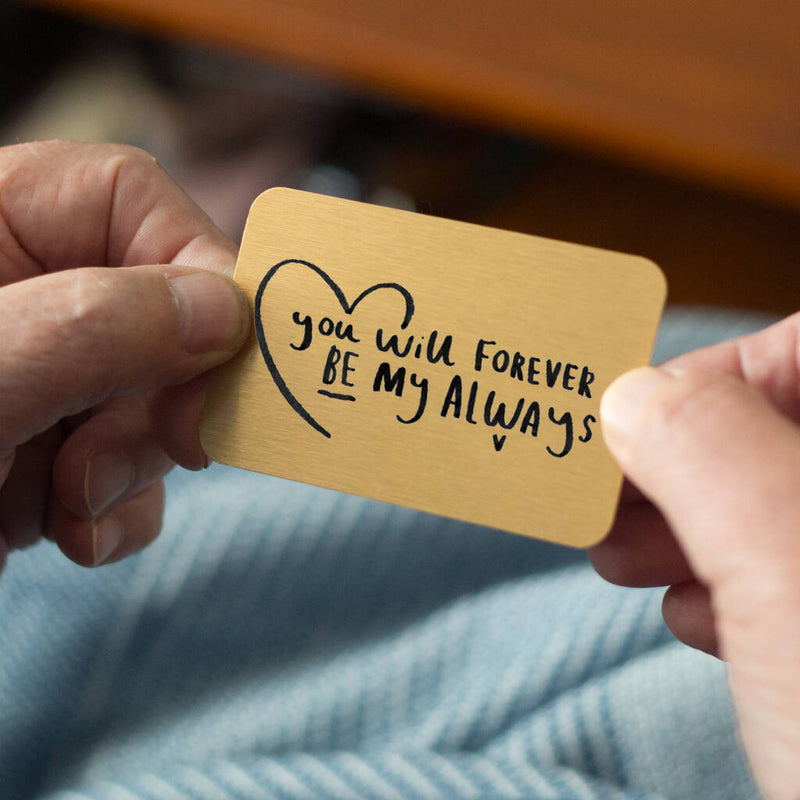 you will FOREVER
BE MY ALWAYS